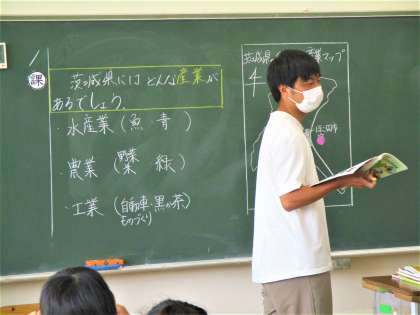 課
茨城県にはどんな産業が
あるでしょう。
・水産業（魚・青）
・農業（野菜 米 緑）
・工業（自動車 黒か茶）
ものづくり
茨城県
産業マップ